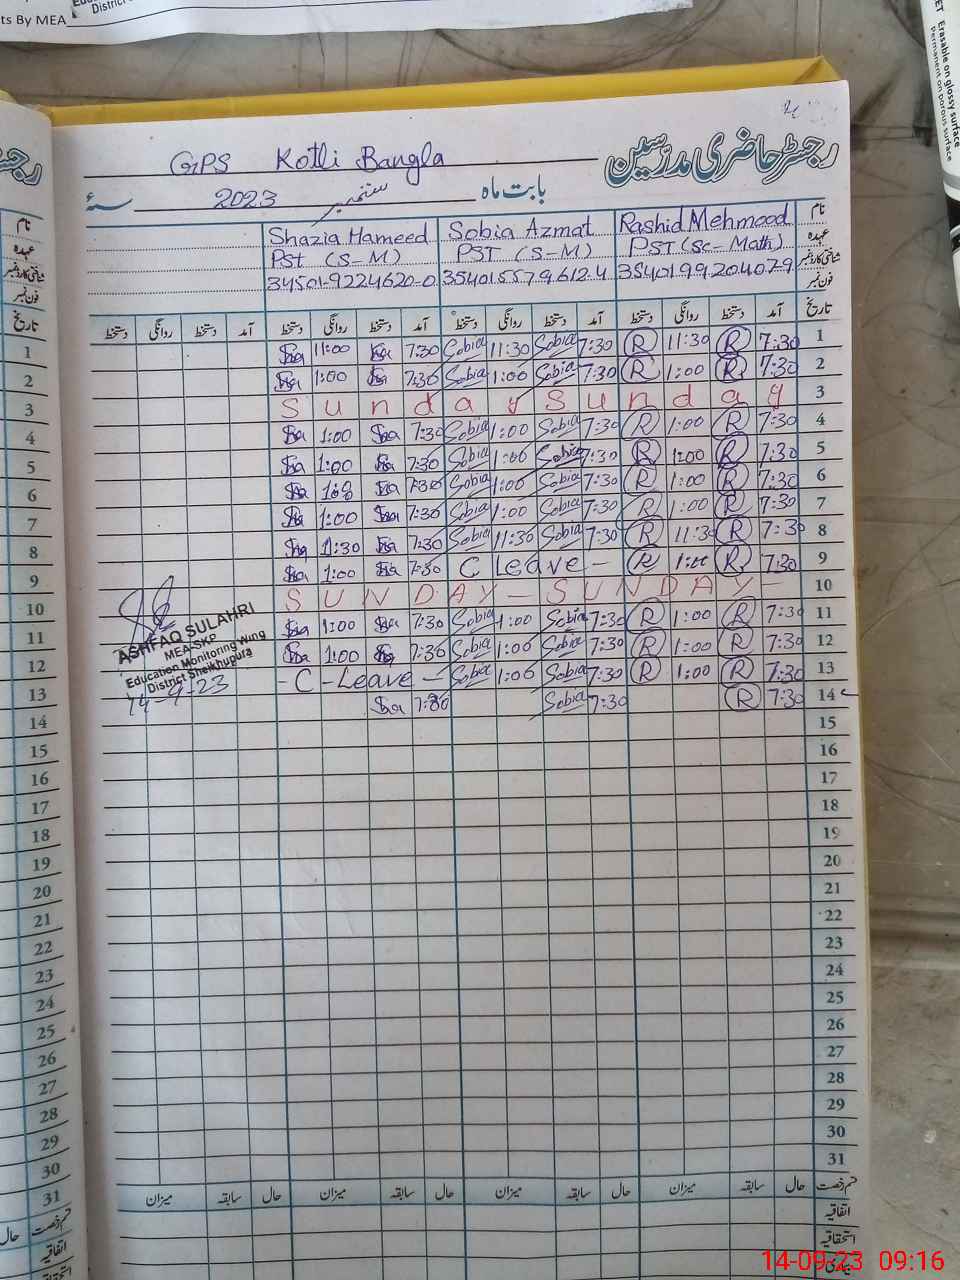 ts By MEA
District
EET Erasable on glossy surface
Permanent on porous surface
رجسٹر حاضری مدرسین
GPS Kotli Bangla
بابت ماہ ستمبر 2023 سنۂ
نام Rashid Mehmood Sobia Azmat Shazia Hameed
عہدہ PST (Sc-Math) PST (S-M) PST (S-M)
شناختی کارڈ نمبر 3540199204079 3540155796124 34501-9224620-0
فون نمبر
تاریخ آمد دستخط روانگی دستخط آمد دستخط روانگی دستخط آمد دستخط روانگی دستخط آمد دستخط روانگی دستخط
1 7:30 R 11:30 R 7:30 Sobia 11:30 Sobia 7:30 Sha 11:00 Sha
2 7:30 R 1:00 R 7:30 Sobia 1:00 Sobia 7:30 Sha 1:00 Sha
3 Sunday Sunday
4 7:30 R 1:00 R 7:30 Sobia 1:00 Sobia 7:30 Sha 1:00 Sha
5 7:30 R 1:00 R 7:30 Sobia 1:00 Sobia 7:30 Sha 1:00 Sha
6 7:30 R 1:00 R 7:30 Sobia 1:00 Sobia 7:30 Sha Sha
7 7:30 R 1:00 R 7:30 Sobia 1:00 Sobia 7:30 Sha 1:00 Sha
8 7:30 R 11:30 R 7:30 Sobia 11:30 Sobia 7:30 Sha 11:30 Sha
9 7:30 R 1:00 R C Leave - 7:30 Sha 1:00 Sha
10 SUNDAY - SUNDAY -
11 7:30 R 1:00 R 7:30 Sobia 1:00 Sobia 7:30 Sha 1:00 Sha
12 7:30 R 1:00 R 7:30 Sobia 1:00 Sobia 7:30 Sha 1:00 Sha
13 7:30 R 1:00 R 7:30 Sobia 1:00 Sobia - C - Leave -
14 7:30 R 7:30 Sobia 7:30 Sha
15
16
17
18
19
20
21
22
23
24
25
26
27
28
29
30
31
ASHFAQ SULAHRI
MEA-SKP
Education Monitoring Wing
District Sheikhupura
14-9-23
قسم رخصت حال سابقہ میزان حال سابقہ میزان حال سابقہ میزان حال سابقہ میزان
اتفاقیہ
استحقاقیہ
بیماری
نام
عہدہ
شناختی کارڈ نمبر
فون نمبر
تاریخ
1
2
3
4
5
6
7
8
9
10
11
12
13
14
15
16
17
18
19
20
21
22
23
24
25
26
27
28
29
30
31
قسم رخصت حال
اتفاقیہ
استحقاقیہ
14-09-23 09:16